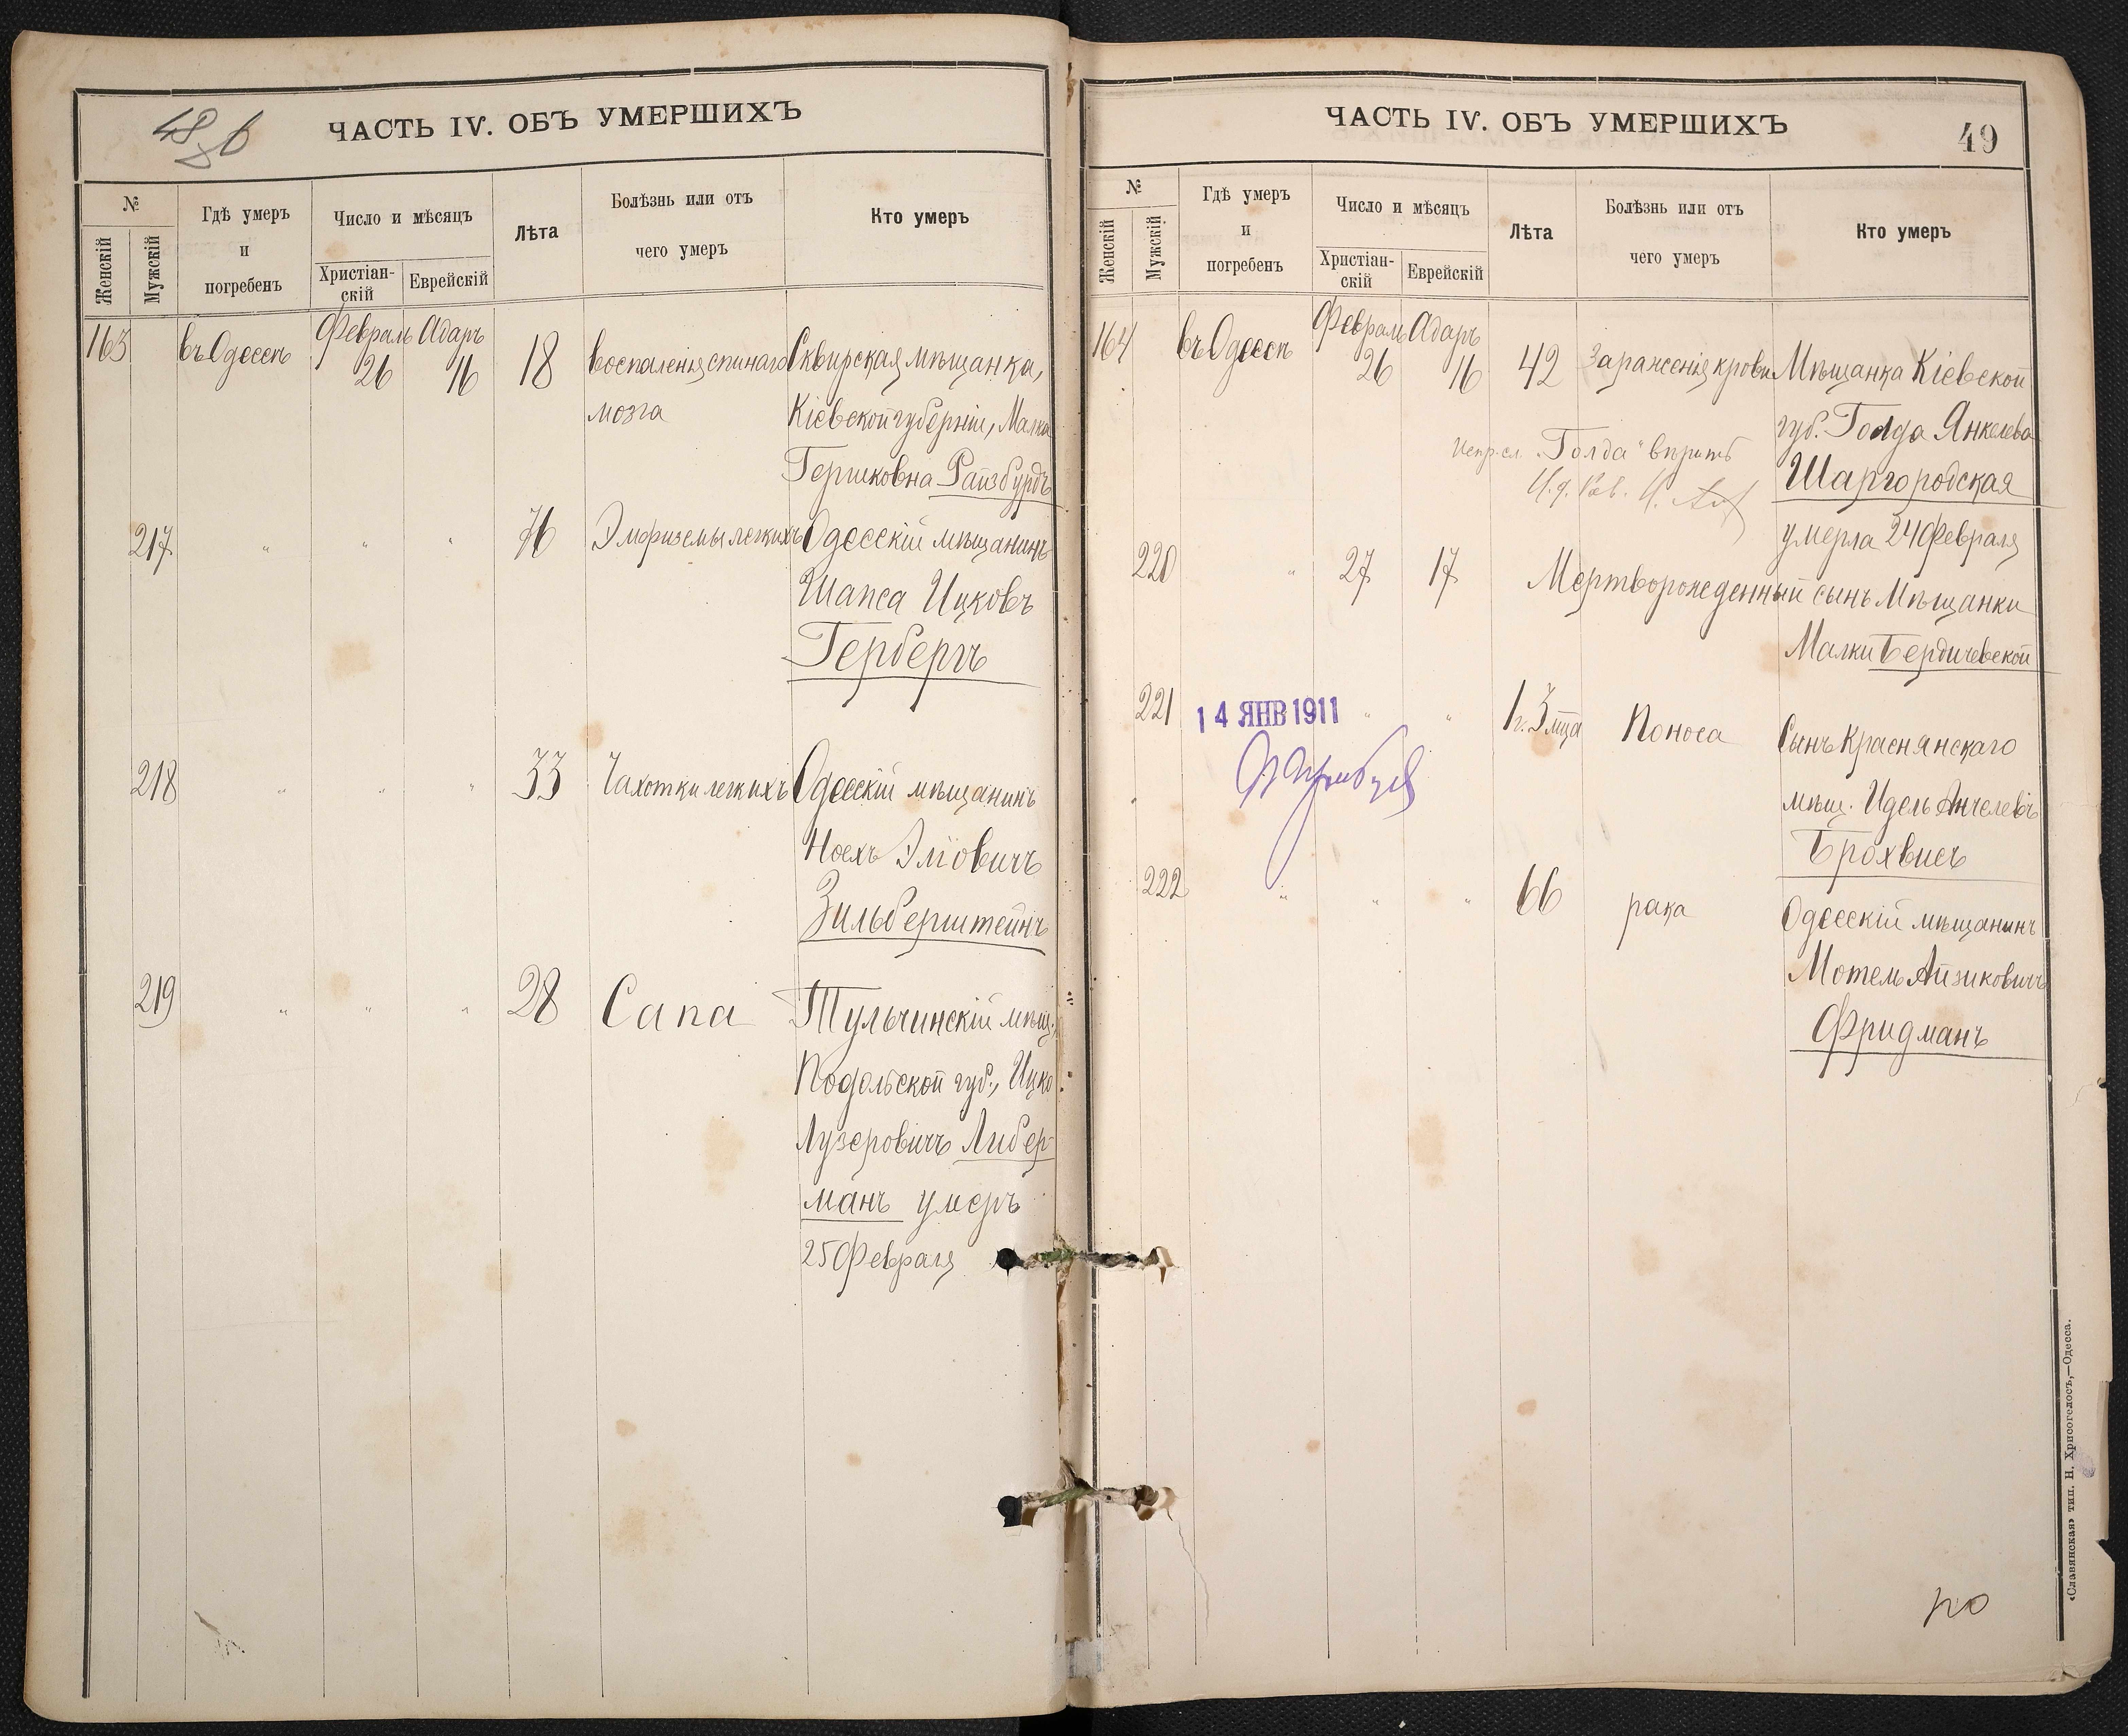 48
ЧАСТЬ IV. ОБЪ УМЕРШИХЪ
№
Женскій
Мужскій
Гдѣ умеръ
и
погребенъ
Число и мѣсяцъ
Христіан-
скій
Еврейскій
Лѣта
Болѣзнь или отъ
чего умеръ
Кто умеръ
163 въ Одессѣ Февраль 26 Адаръ 16 18 воспаленія спинаго Сквирская мѣщанка,
мозга Кіевской губерніи, Малка
Гершковна Райзбурдъ
217 " " " 76 Эмфиземы легкихъ Одесскій мѣщанинъ
Шапса Ицковъ
Герберъ
218 " " " 33 Чахотки легкихъ Одесскій мѣщанинъ
Ноехъ Эліовичъ
Зильберштейнъ
219 " " " 28 Сапа Тульчинскій мѣщ.
Подольской губ., Ицко
Лузеровичъ Либер-
манъ умеръ
25 Февраля
ЧАСТЬ IV. ОБЪ УМЕРШИХЪ
49
№
Женскій
Мужскій
Гдѣ умеръ
и
погребенъ
Число и мѣсяцъ
Христіан-
скій
Еврейскій
Лѣта
Болѣзнь или отъ
чего умеръ
Кто умеръ
164 въ Одессѣ Февраль 26 Адаръ 16 42 Зараженія крови Мѣщанка Кіевской
губ. Голда Янкелева
Испр. сл. "Голда" вѣрить
Шаргородская
И. д. Рав.
умерла 24 Февраля
220 " 27 17 Мертворожденный сынъ Мѣщанки
Малки Бердичевской
221 14 ЯНВ 1911 " " 1 г. 3 мца Поноса Сынъ Краснянскаго
мѣщ. Идель Анчелевъ
Брохвисъ
222 " " " 66 рака Одесскій мѣщанинъ
Мотель Айзиковичъ
Фридманъ
«Славянская» тип. Н. Хрисогелосъ,—Одесса.